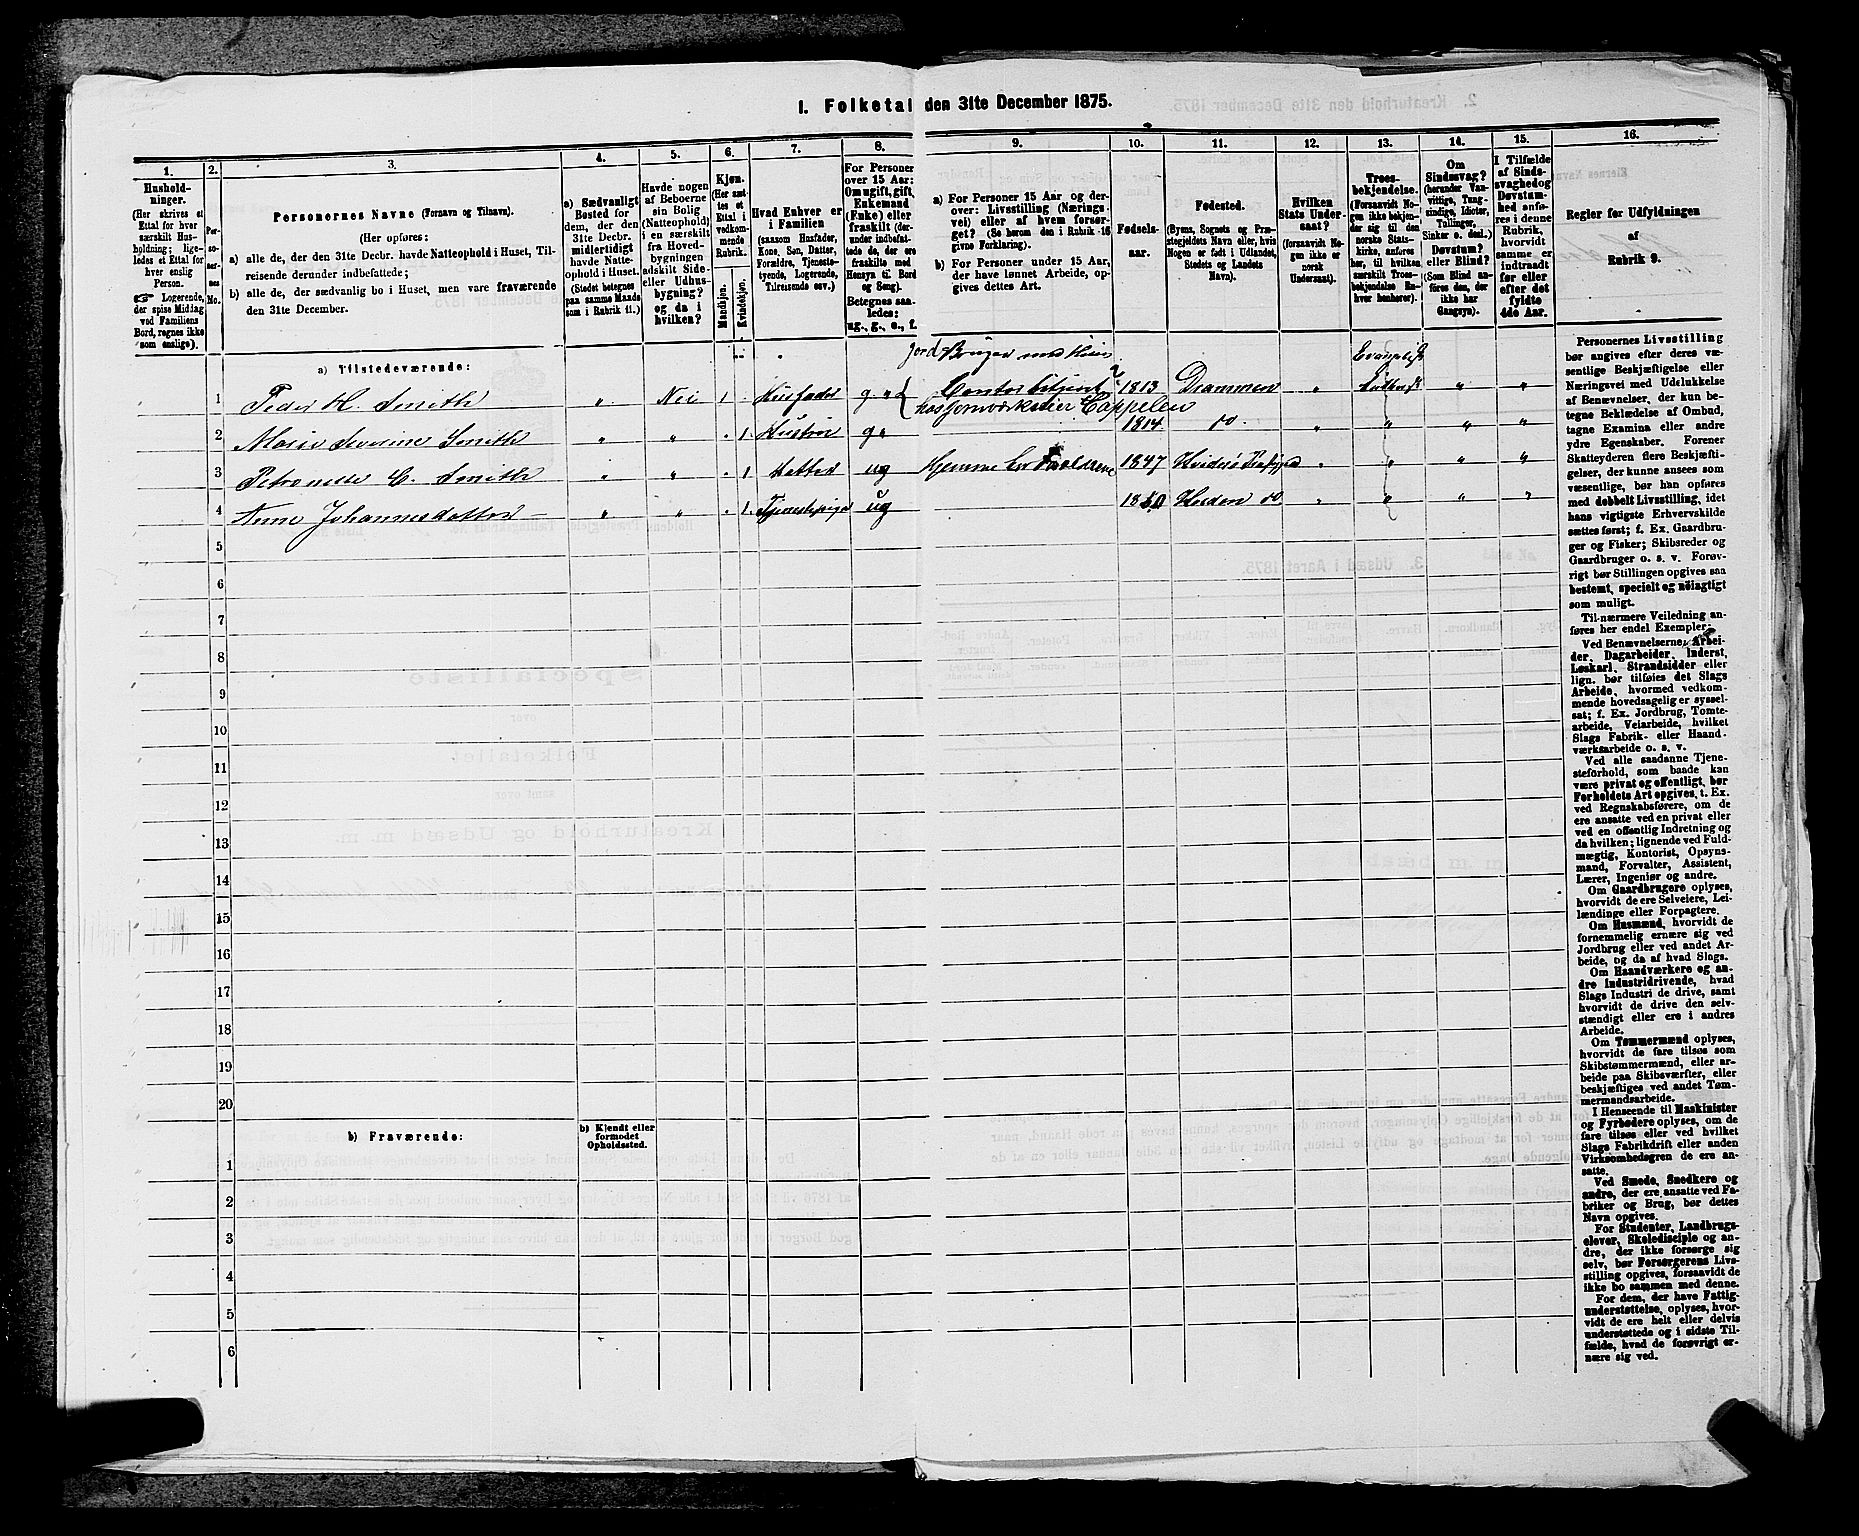 1. Folketal den 31te December 1875.
1.
Hushold-
ninger.
(Her skrives et
Ettal for hver
særskilt Hus-
holdning; lige-
ledes et Ettal for
hver enslig
Person.
Logerende,
der spise Middag
ved Familiens
Bord, regnes ikke
som enslige).
2.
Per-
so-
ner-
nes
No.
3.
Personernes Navne (Fornavn og Tilnavn).
(Her opføres:
a) alle de, der den 31te Decbr. havde Natteophold i Huset, Til-
reisende derunder indbefattede;
b) alle de, der sædvanlig bo i Huset, men vare fraværende
den 31te December.
4.
a) Sædvanligt
Bosted for
dem, der den
31te Decbr.
midlertidigt
havde Natte-
ophold i Huset.
(Stedet betegnes
paa samme Maade
som i Rubrik 11.)
5.
Havde nogen
af Beboerne
sin Bolig
(Natteophold)
i en særskilt
fra Hoved-
bygningen
adskilt Side-
eller Udhus-
bygning?
og da i
hvilken?
6.
Kjøn.
(Her sæt-
tes et
Ettal i
vedkom-
mende
Rubrik.
Mandkjøn.
Kvindekjøn.
7.
Hvad Enhver er
i Familien
(saasom Husfader,
Kone, Søn, Datter,
Forældre, Tjeneste-
tyende, Logerende,
Tilreisende osv.)
8.
For Personer
over 15 Aar:
Om ugift, gift,
Enkemand
(Enke) eller
fraskilt (der-
under indbefat-
tede de, der ere
fraskilte med
Hensyn til Bord
og Seng).
Betegnes saa-
ledes:
ug., g., e., f.
9.
a) For Personer 15 Aar og der-
over: Livsstilling (Nærings-
vei) eller af hvem forsør-
get? (Se herom den i Rubrik 16
givne Forklaring).
b) For Personer under 15 Aar,
der have lønnet Arbeide, op-
gives dettes Art.
10.
Fødsels-
aar.
11.
Fødested.
(Byens, Sognets og Præ-
stegjeldets Navn eller, hvis
Nogen er født i Udlandet,
Stedets og Landets
Navn).
12.
Hvilken
Stats Under-
saat?
(forsaavidt No-
gen ikke er
norsk
Undersaat).
13.
Troes-
bekjendelse.
(Forsaavidt No-
gen ikke bekjen-
der sig til den
norske Stats-
kirke, anføres
her, til hvilken
særskilt Troes-
bekjendelse En-
hver henhører).
14.
Om
Sindssvag?
(herunder Van-
vittige, Tung-
sindige, Idioter,
Tullinger,
Sinker o. desl.)
Døvstum?
eller Blind?
(Som Blind an-
føres den, der
ikke har
Gangsyn).
15.
I Tilfælde
af Sinds-
svaghed og
Døvstum-
hed anfø-
res i denne
Rubrik,
hvorvidt
samme er
indtraadt
før eller
efter det
fyldte
4de Aar.
16.
Regler for Udfyldningen
af
Rubrik 9.
a) Tilstedeværende:
Jord Bruger med Huus
Evangelisk
1 Peder H. Smith „ Nei 1 Husfader g. 1813 Drammen „ Luthersk „ „
hos Jernværkseier Cappelen
2 Marie Severine Smith „ „ 1. Hustru g. 1814 do „ „ „ „
3 Petronelle C. Smith „ „ 1 Datter ug Hjemme hos Forældrene 1847 „ „ „ „
4 Anne Johannesdatter „ „ 1. Tjenestepige ug 1850 Holden do „ „ „ „
5
6
7
8
9
10
11
12
13
14
15
16
17
18
19
20
b) Fraværende:
b) Kjendt eller
formodet
Opholdssted.
1
2
3
4
5
6
Personernes Livsstilling
bør angives efter deres væ-
sentlige Beskjæftigelse eller
Næringsvei med Udelukkelse
af Benævnelser, der kun be-
tegne Beklædelse af Ombud,
tagne Examina eller andre
ydre Egenskaber. Forener
Skatteyderen flere Beskjæfti-
gelser, der kunne ansees som
væsentlige, bør han opføres
med dobbelt Livsstilling, idet
hans vigtigste Erhvervskilde
sættes først; f. Ex. Gaardbru-
ger og Fisker; Skibsreder og
Gaardbruger o. s. v. Forøv-
rigt bør Stillingen opgives saa
bestemt, specielt og nøiagtigt
som muligt.
Til nærmere Veiledning an-
føres her endel Exempler:
Ved Benævnelserne, Arbei-
der, Dagarbeider, Inderst,
Løskarl, Strandsidder eller
lign. bør tilføies det Slags
Arbeide, hvormed vedkom-
mende hovedsagelig er syssel-
sat; f. Ex. Jordbrug, Tomte-
arbeide, Veiarbeide, hvilket
Slags Fabrik- eller Haand-
værksarbeide o. s. v.
Ved alle saadanne Tjene-
steforhold, som baade kan
være privat og offentligt, bør
Forholdets Art opgives, t. Ex.
ved Regnskabsførere, om de
ere ansatte ved en privat eller
ved en offentlig Indretning og
da hvilken; lignende ved Fuld-
mægtig, Kontorist, Opsyns-
mand, Forvalter, Assistent,
Lærer, Ingeniør og andre.
Om Gaardbrugere oplyses,
hvorvidt de ere Selveiere, Lei-
lændinge eller Forpagtere.
Om Husmænd, hvorvidt de
fornemmelig ernære sig ved
Jordbrug eller ved andet Ar-
beide, og da af hvad Slags.
Om Haandværkere og an-
dre Industridrivende, hvad
Slags Industri de drive, samt
hvorvidt de drive den selv-
stændigt eller ere i andres
Arbeide.
Om Tømmermænd oplyses,
hvorvidt de fare tilsøs som
Skibstømmermænd, eller ar-
beide paa Skibsværfter, eller
beskjæftiges ved andet Tøm-
mermandsarbeide.
I Henseende til Maskinister
og Fyrbødere oplyses, om de
fare tilsøs eller ved hvilket
Slags Fabrikdrift eller anden
Virksomhedsgren de ere an-
satte.
Ved Smede, Snedkere og
andre, der ere ansatte ved Fa-
briker og Brug, bør dettes
Navn opgives.
For Studenter, Landbrugs-
elever, Skoledisciple og an-
dre, der ikke forsørge sig
selv, bør Forsørgerens Livs-
stilling opgives, forsaavidt de
ikke bo sammen med denne.
For dem, der have Fattig-
understøttelse, oplyses, hvor-
vidt de ere helt eller delvis
understøttede og i sidste Til-
fælde, hvad de forøvrigt er-
nære sig ved.